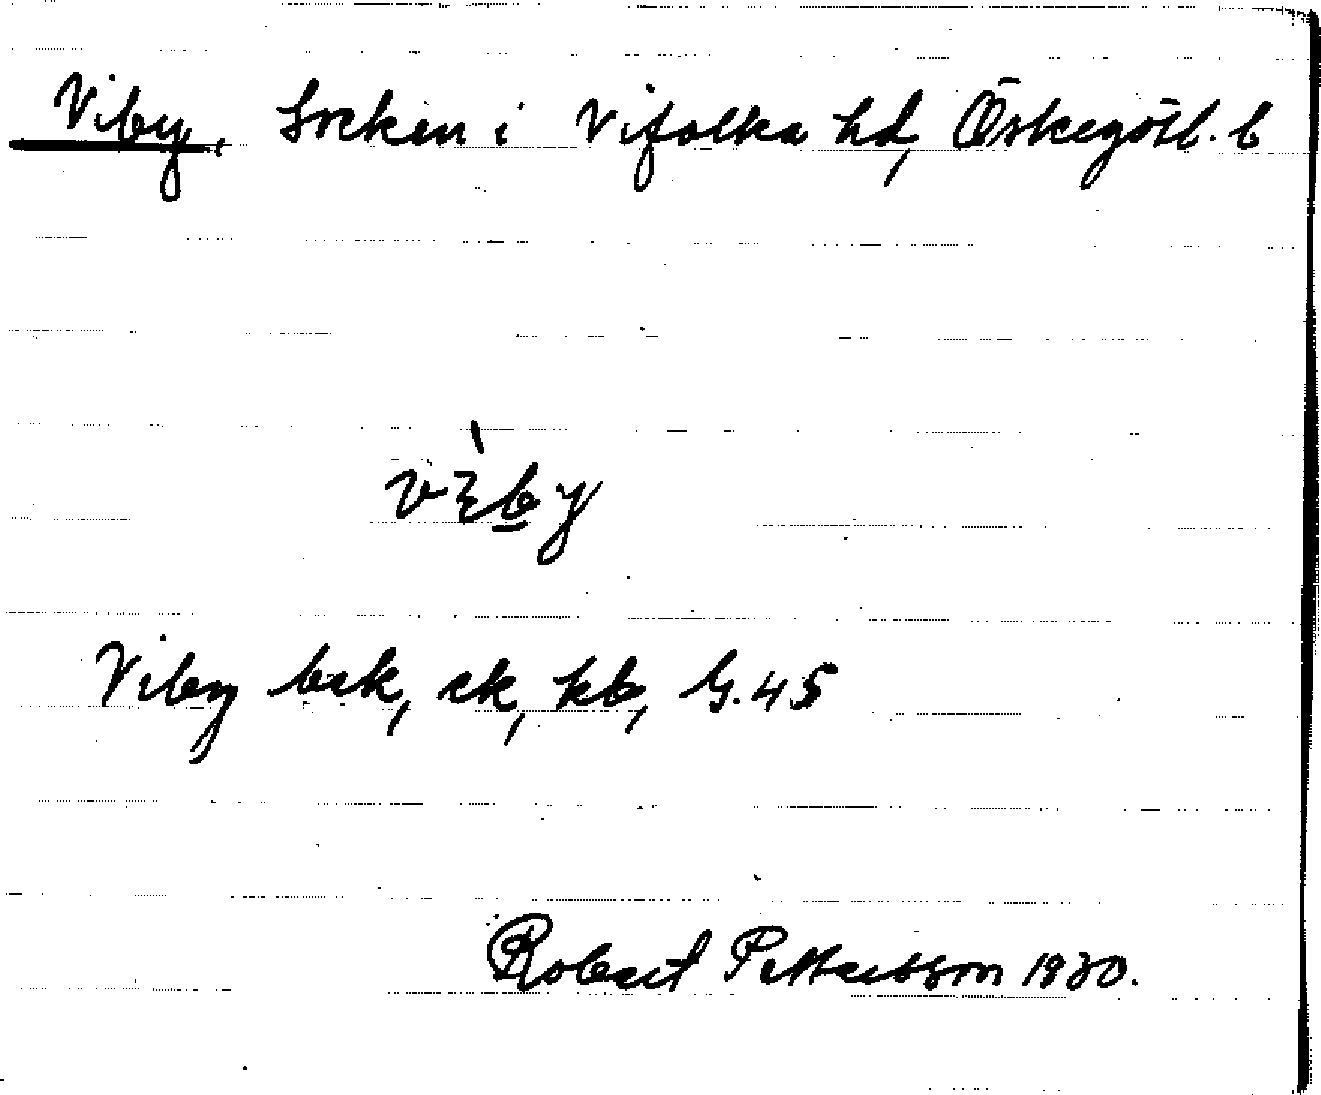 Viby, Socken i Vifolka hd, Östergötl. l
Viby bsk, ek, kb, G. 45
Robert Pettersson 1930.